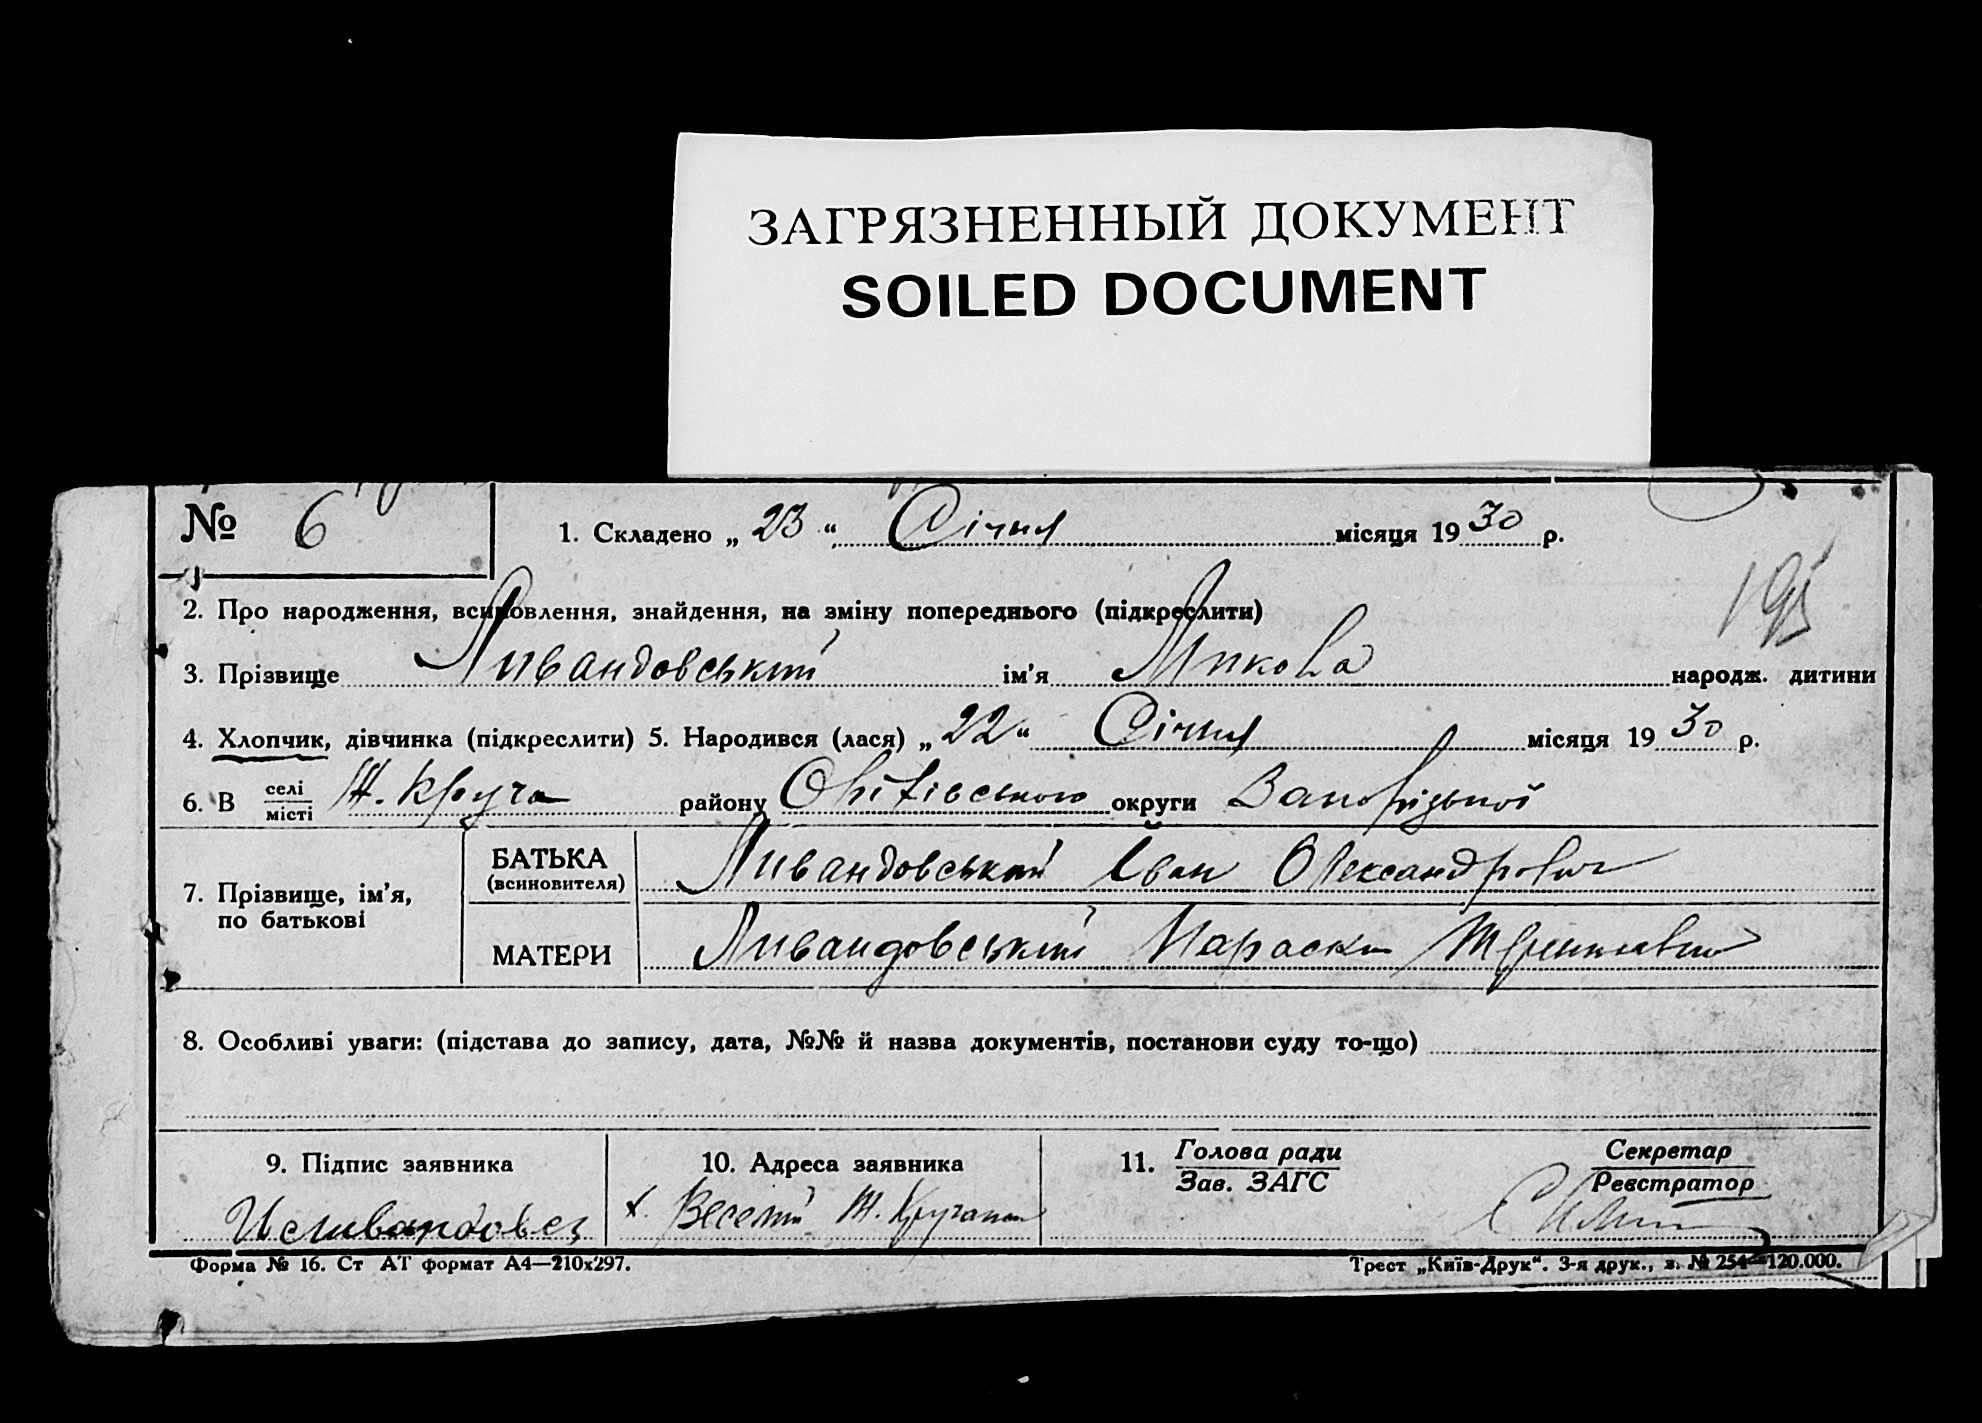 ЗАГРЯЗНЕННЫЙ ДОКУМЕНТ
SOILED DOCUMENT
№ 6
1. Складено „ 23 “ Січня місяця 1930 р.
195
2. Про народження, всиновлення, знайдення, на зміну попереднього (підкреслити)
3. Прізвище Ливандовський ім'я Микола народж. дитини
4. Хлопчик, дівчинка (підкреслити) 5. Народився (лася) „ 22 “ Січня місяця 1930 р.
6. В селі місті Ж. Круча району Оріхівського округи Запорізької
7. Прізвище, ім'я, по батькові
БАТЬКА (всиновителя) Ливандовський Іван Олександрович
МАТЕРИ Ливандовський Параска
8. Особливі уваги: (підстава до запису, дата, №№ й назва документів, постанови суду то-що)
9. Підпис заявника
10. Адреса заявника
х. Веселий Ж.
11. Голова ради Зав. ЗАГС
Секретар Реєстратор
Форма № 16. Ст АТ формат А4—210х297.
Трест „Київ-Друк“. 3-я друк., з. № 254—120.000.